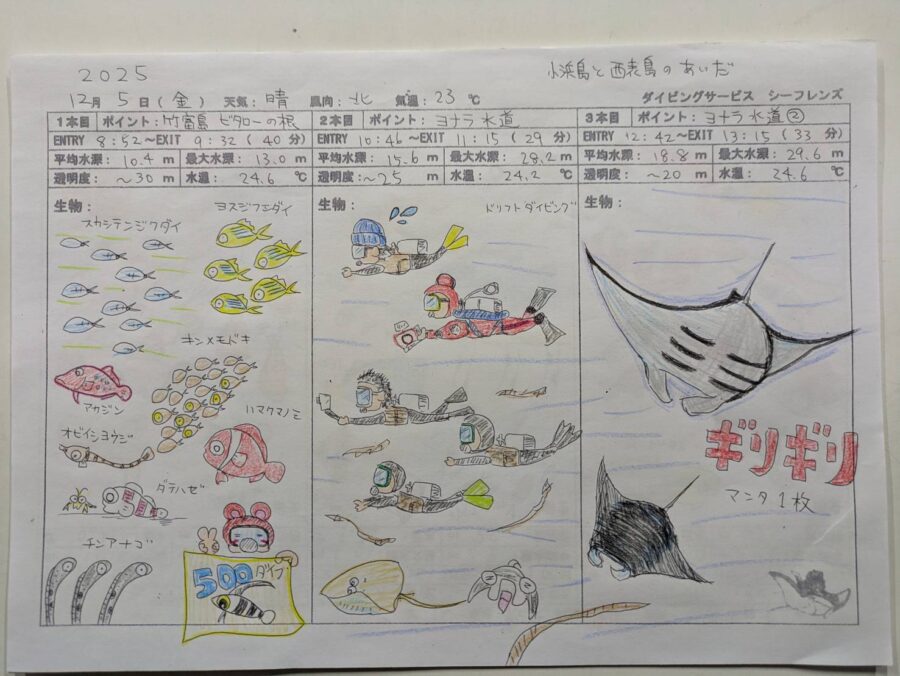 2025
小浜島と西表島のあいだ
12月 5日(金) 天気: 晴 風向: 北 気温: 23 ℃ ダイビングサービス シーフレンズ
1本目 ポイント: 竹富島 ビタローの根
ENTRY 8:52~EXIT 9:32 (40 分)
平均水深: 10.4 m 最大水深: 13.0 m
透明度: ~30 m 水温: 24.6 ℃
生物:
スカシテンジクダイ
ヨスジフエダイ
キンメモドキ
アカジン
ハマクマノミ
オビイシヨウジ
ダテハゼ
チンアナゴ
500 ダイブ
2本目 ポイント: ヨナラ水道
ENTRY 10:46~EXIT 11:15 (29 分)
平均水深: 15.6 m 最大水深: 28.2 m
透明度: ~25 m 水温: 24.2 ℃
生物:
ドリフトダイビング
3本目 ポイント: ヨナラ水道②
ENTRY 12:42~EXIT 13:15 (33 分)
平均水深: 18.8 m 最大水深: 29.6 m
透明度: ~20 m 水温: 24.6 ℃
生物:
ギリギリ
マンタ1枚